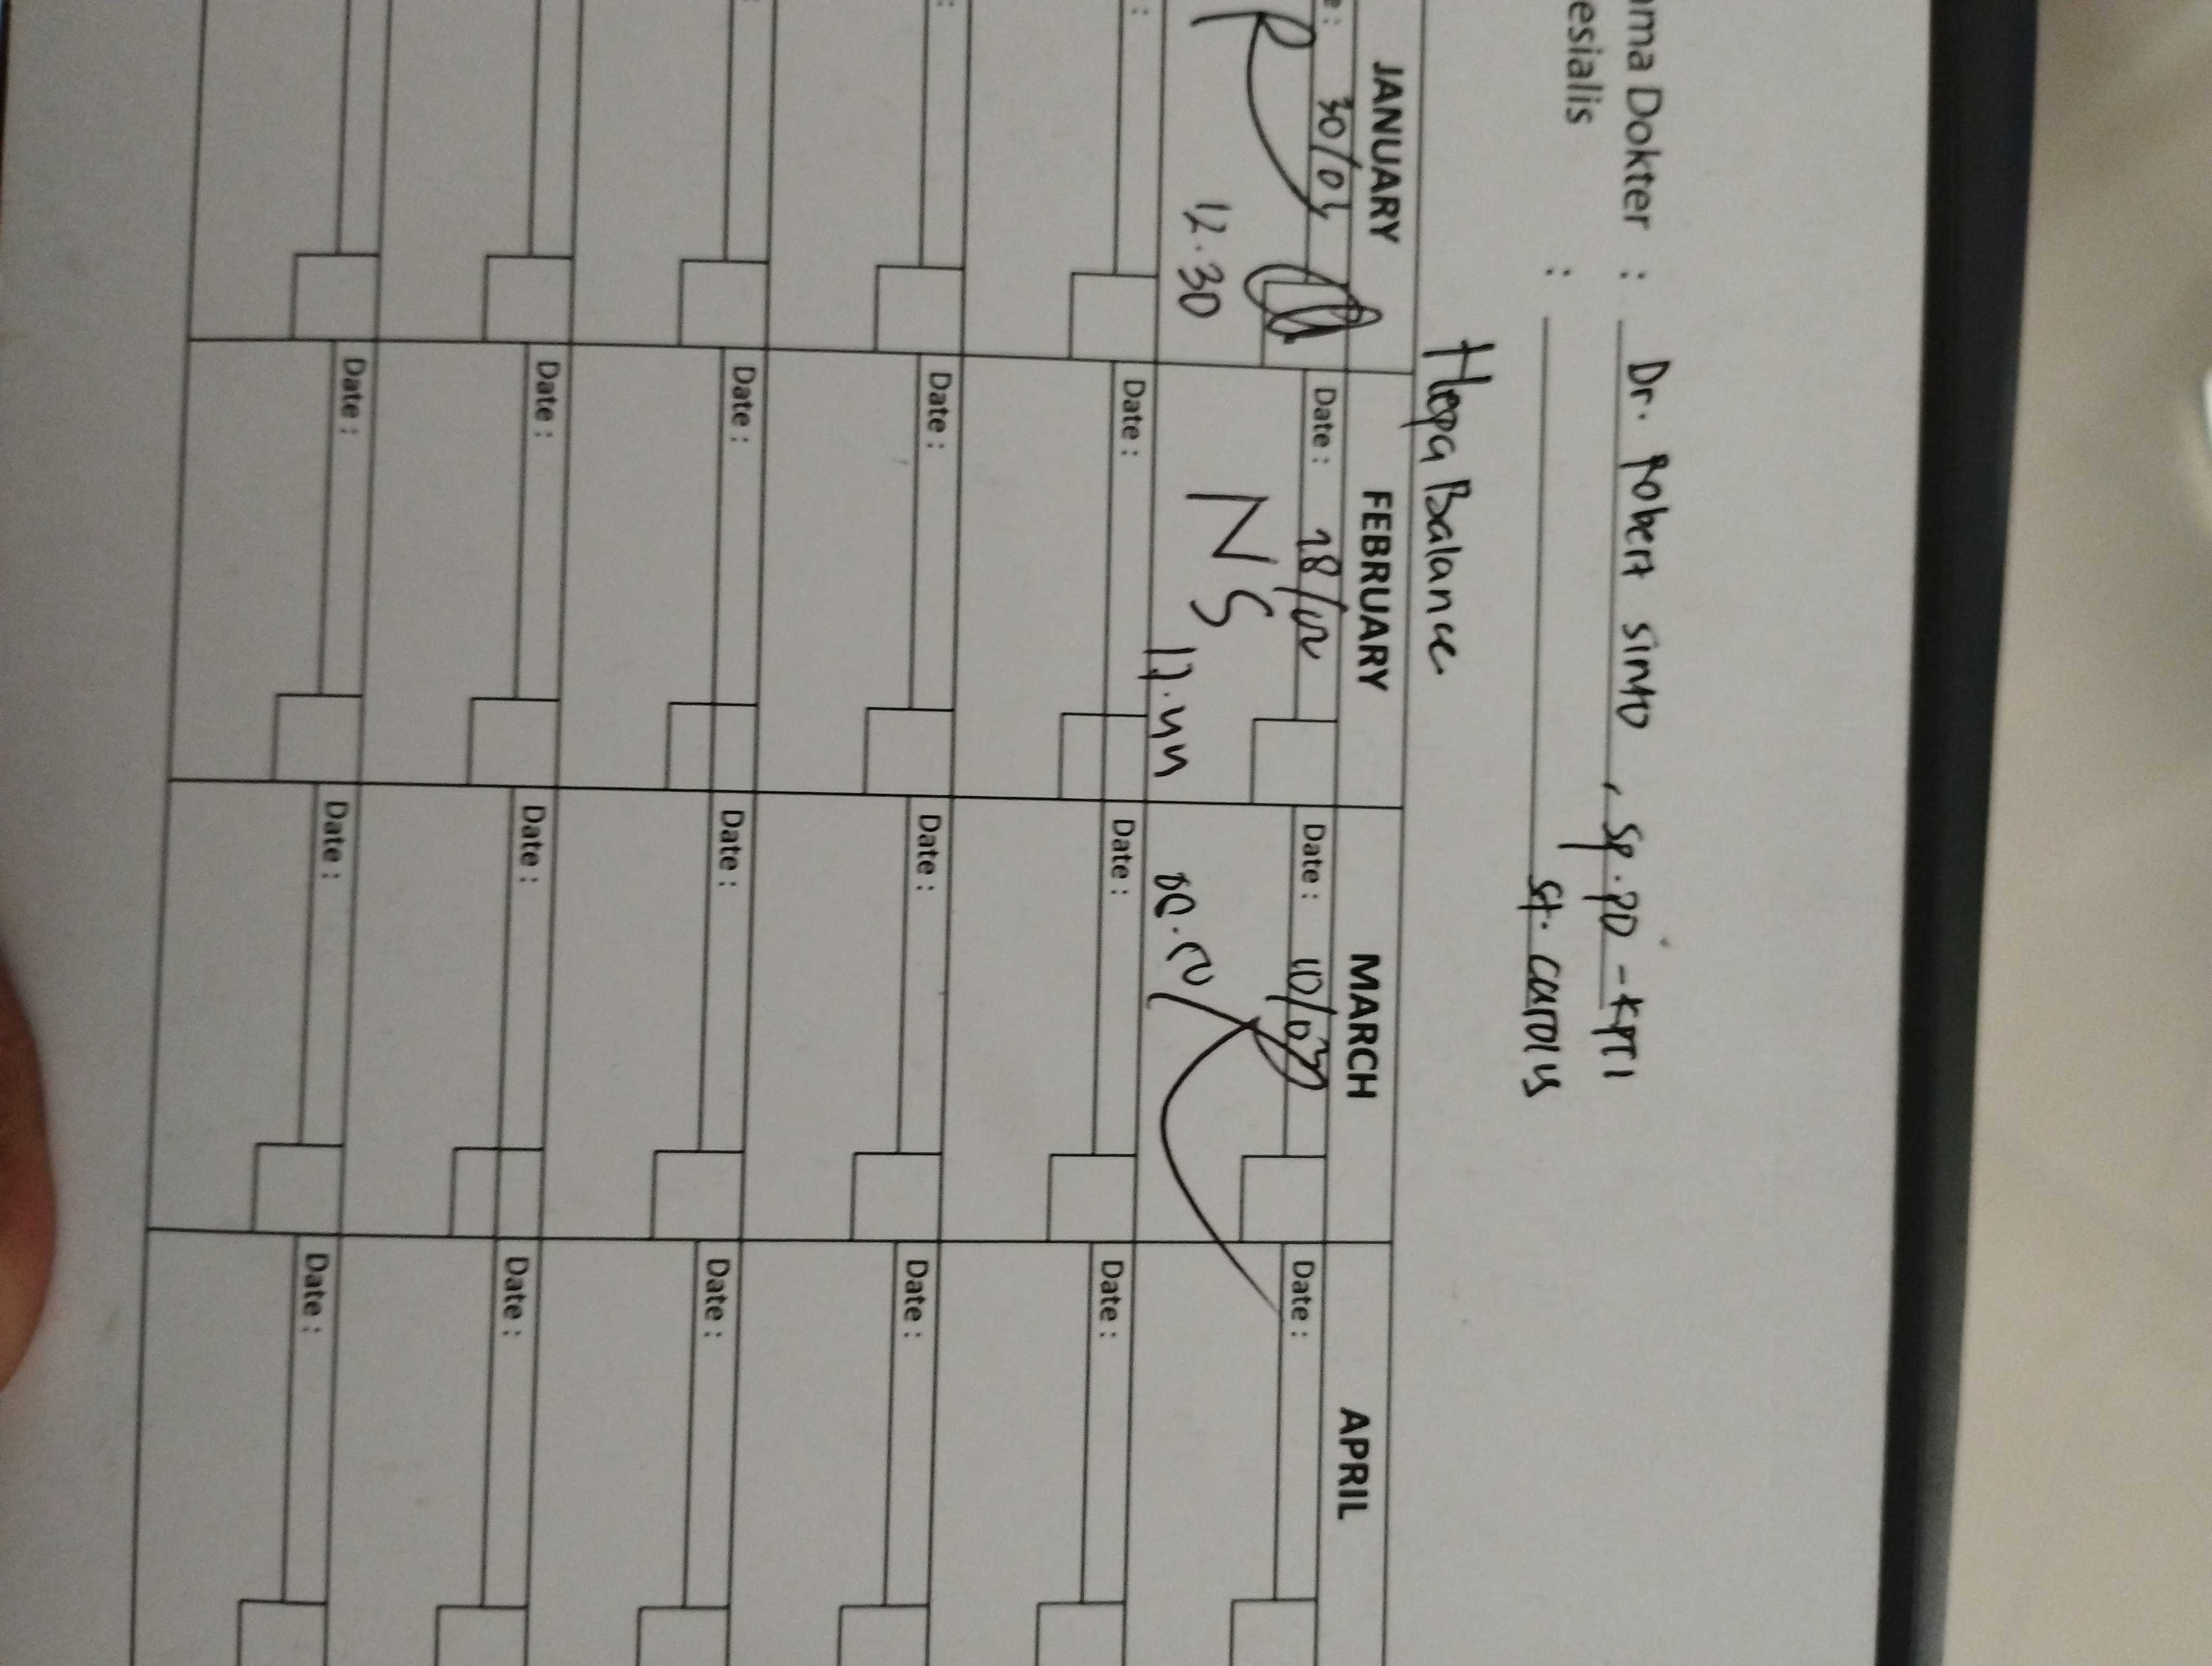 ama Dokter : Dr. Robert sinto , Sp.PD - KPTI
esialis : St. carolus
Hepa Balance
JANUARY FEBRUARY MARCH APRIL
e : 30/01 Date : 28/02 Date : 10/03 Date :
NS
12.30
: Date : Date : Date :
: Date : Date : Date :
: Date : Date : Date :
: Date : Date : Date :
Date : Date : Date :